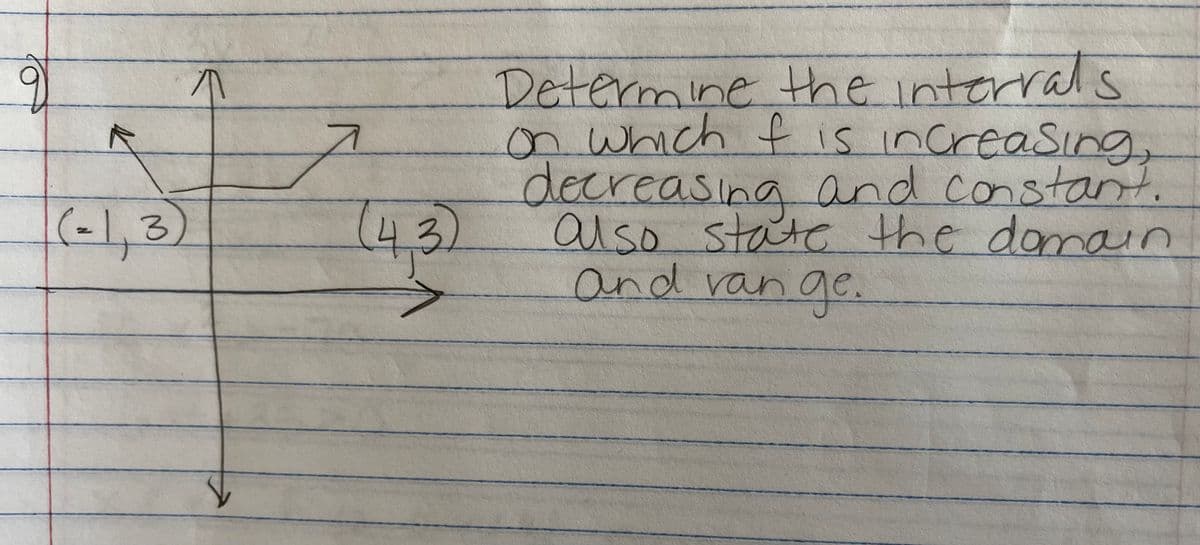 9)
Determine the intervals
on which f is increasing,
decreasing and constant.
(-1,3)
(4,3)
also state the domain
and range.